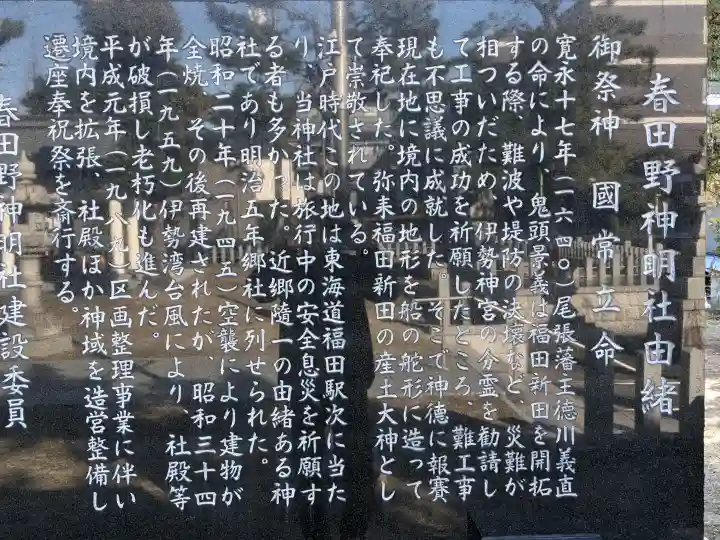 春田野神明社由緒
御祭神　國常立命
寛永十七年（一六四〇）尾張藩主徳川義直
の命により、鬼頭景義は福田新田を開拓
する際、難波や堤防の決壊など、災難が
相ついだため、伊勢神宮の分霊を勧請し
て工事の成功を祈願したところ、難工事
も不思議に成就した。そこで神徳に報賽
現在地に境内の地形を船の舵形に造って
奉祀した。弥来福田新田の産土大神とし
て崇敬されている。
江戸時代この地は東海道福田駅次に当た
り、当神社は旅行中の安全息災を祈願す
る者も多かった。近郷随一の由緒ある神
社であり明治五年郷社に列せられた。
昭和二十年（一九四五）空襲により建物が
全焼、その後再建されたが、昭和三十四
年（一九五九）伊勢湾台風により、社殿等
が破損し老朽化も進んだ。
平成元年（一九八九）区画整理事業に伴い
境内を拡張、社殿ほか神域を造営整備し
遷座奉祝祭を斎行する。
春田野神明社建設委員